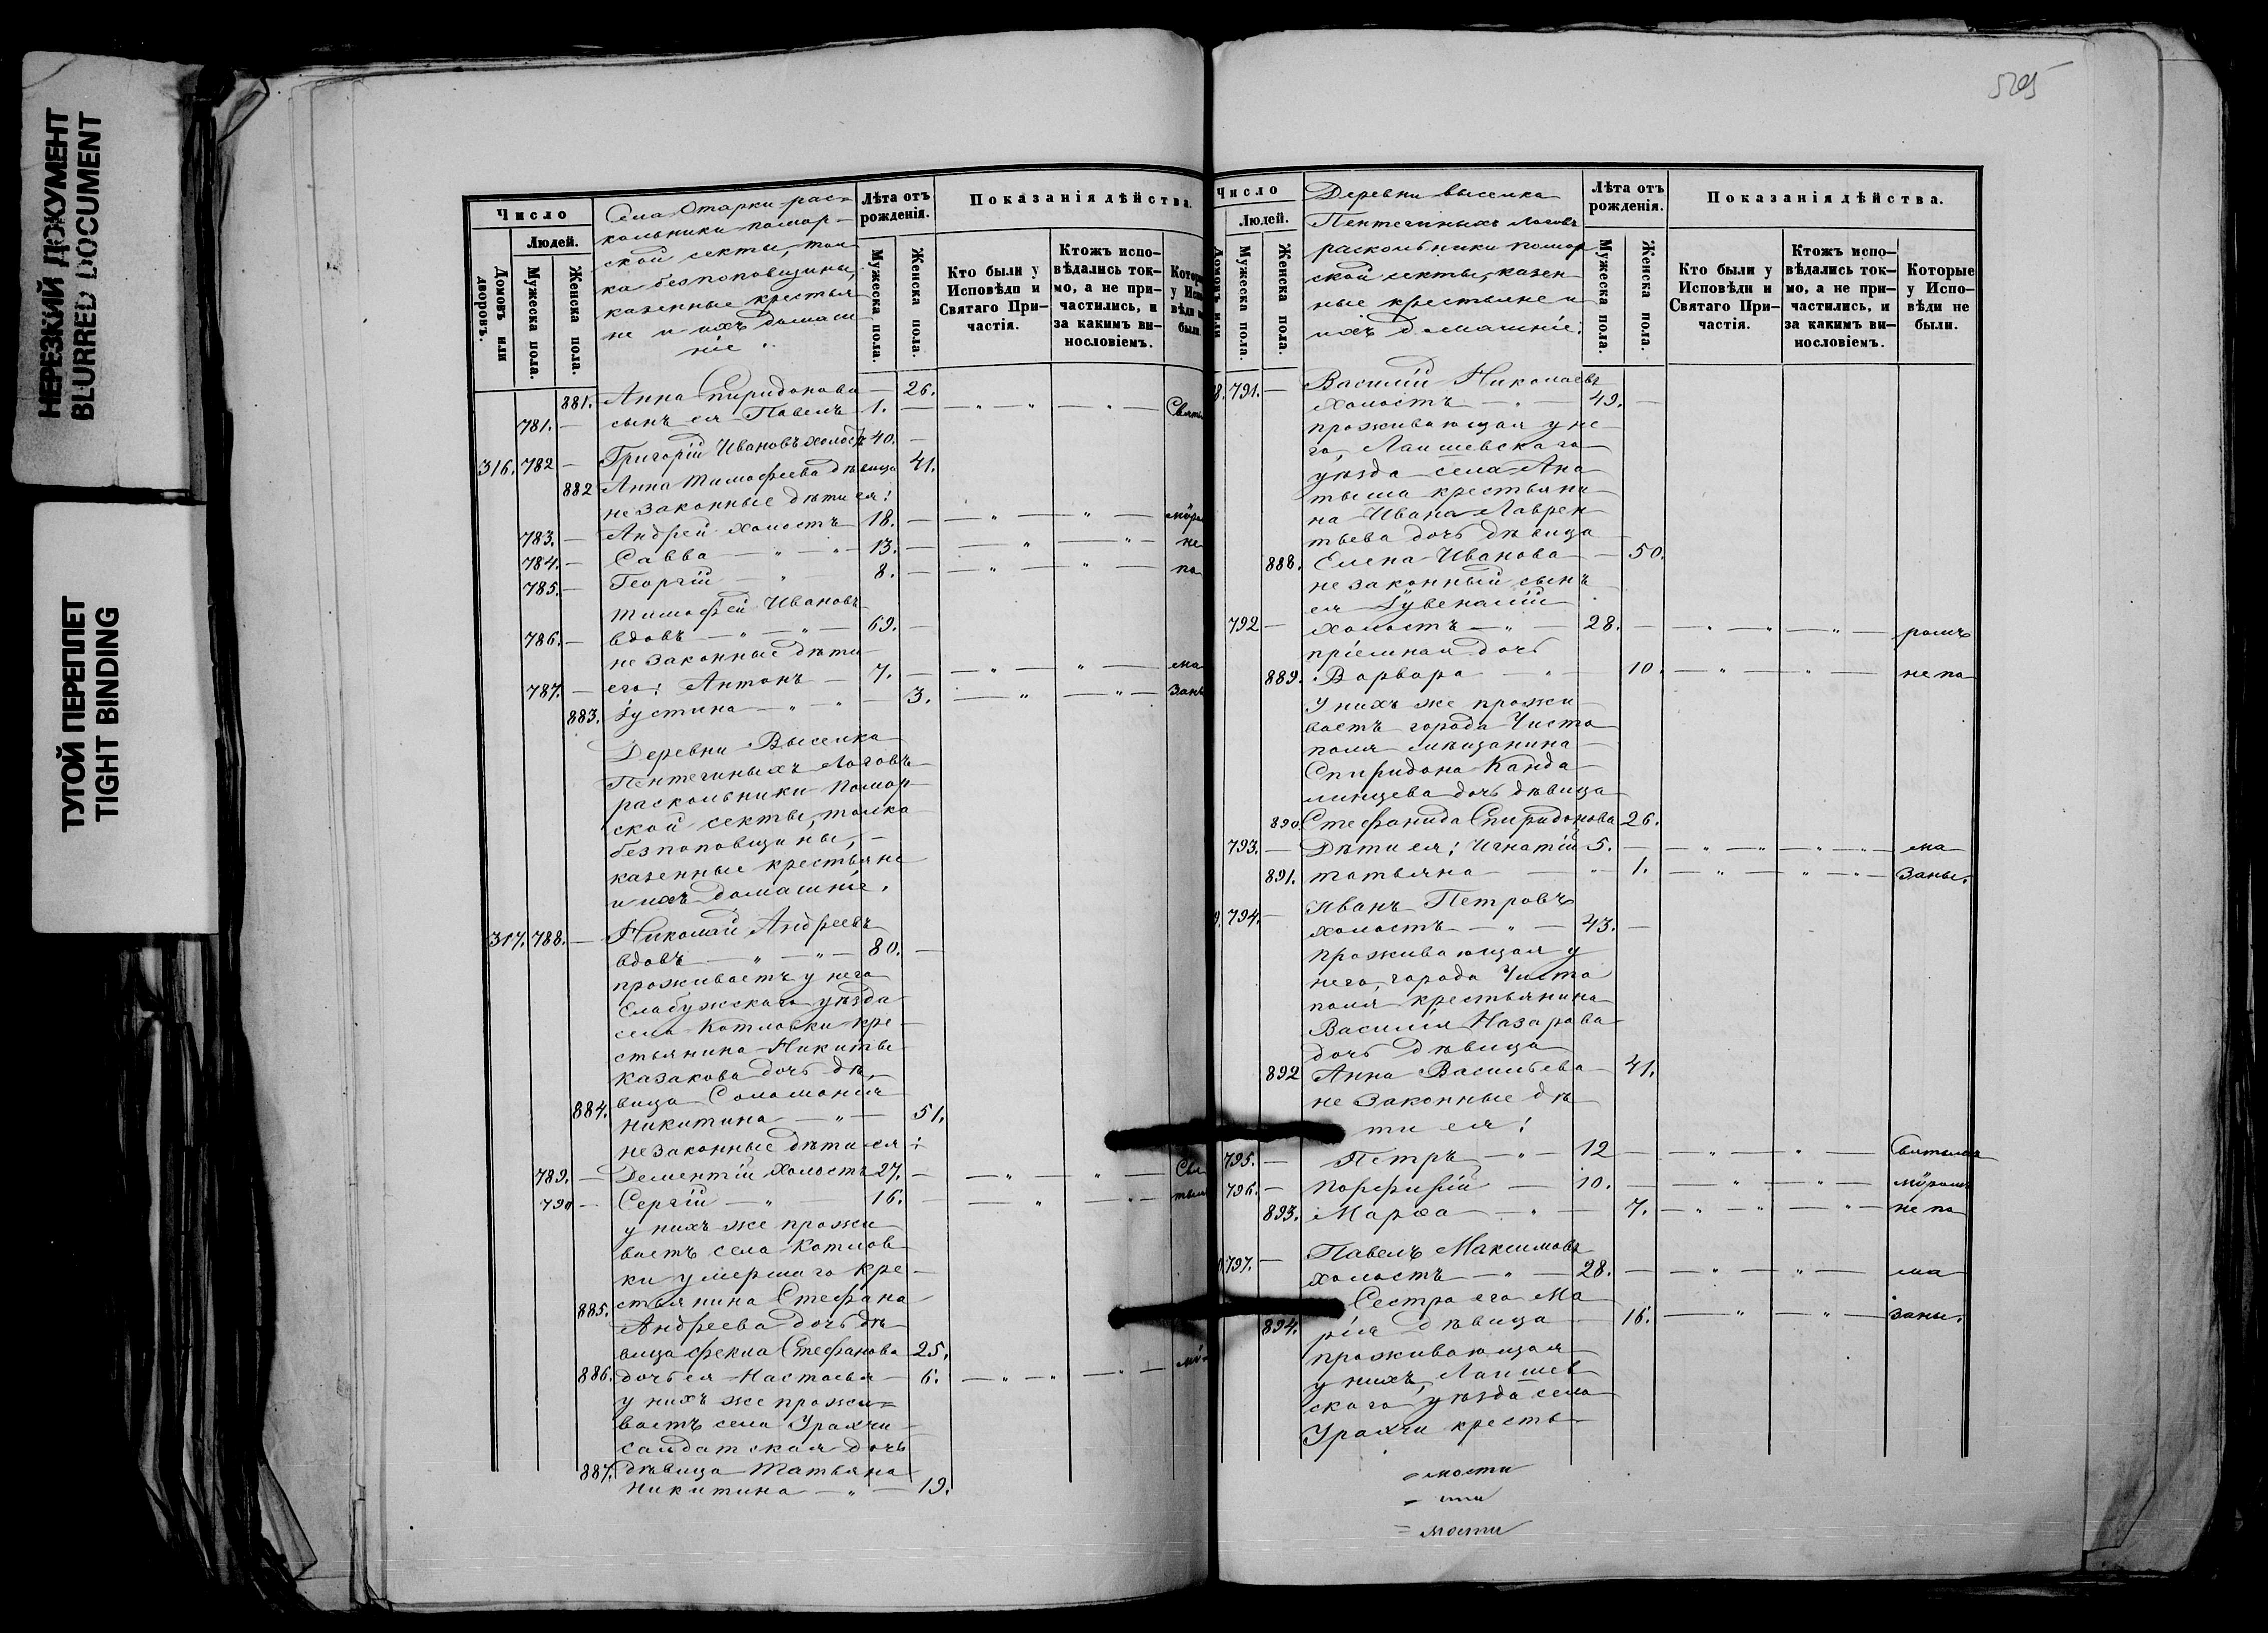 НЕРЕЗКИЙ ДОКУМЕНТ
BLURRED DOCUMENT
ТУГОЙ ПЕРЕПЛЕТ
TIGHT BINDING
Число
Людей.
Домовъ или дворовъ.
Мужеска пола.
Женска пола.
Села Отарки рас=
кольники помор-
ской секты, тол
ка безпоповщины,
казенные крестья
не и ихъ домаш
ніе:
Лѣта отъ рожденія.
Мужеска пола.
Женска пола.
Показанія дѣйства.
Кто были у Исповѣди и Святаго Причастія.
Ктожъ исповѣдались токмо, а не причастились, и за какимъ винословіемъ.
881. Анна Спиридонова — 26.
781. — сынъ ея Павелъ 1. — — „ „ — „ — Святы
316. 782 — Григорій Ивановъ холостъ 40. —
882 Анна Тимофеева дѣвица 41.
незаконные дѣти ея:
783. — Андрей холостъ 18. — — „ — „ — мѵро
784. — Савва — „ — „ — 13. — — „ — „ — не
785. — Георгій — „ 8. — — „ — „ — по
Тимофей Ивановъ
786. — вдовъ — „ — „ — 69. —
незаконные дѣти
787. — его: Антонъ — 7. — — „ — „ — ма
883. Іустина — „ — „ — 3. — „ — „ — заны
Деревни Выселка
Пентегиныхъ Логовъ
раскольники Помор-
ской секты, толка
безпоповщины, —
казенные крестьяне
и ихъ домашніе.
317. 788. — Николай Андреевъ
вдовъ — „ — „ — 80. —
проживаетъ у него
Елабужскаго уѣзда
села Котловки кре-
стьянина Никиты
Казакова дочь дѣ-
884. вица Соломонія
Никитина — „ — 51.
незаконные дѣти ея:
789. — Дементій холостъ 27. — — „ — „ — Свя
790 — Сергій — „ 16. — — „ — „ — тым
у нихъ же прожи
ваетъ села Котлов
ки умершаго кре-
885. стьянина Стефана
Андреева дочь дѣ-
вица Фекла Стефанова 25.
886. дочь ея Настасья — 6. — „ — „ — „ — мѵ
у нихъ же прожи=
ваетъ села Урахчи
салдатская дочь
887. дѣвица Татьяна
Никитина — „ — 19.
Число
Людей.
Мужеска пола.
Женска пола.
Деревни выселка
Пентегиныхъ Логовъ
раскольники помор
ской секты, казен-
ные крестьяне и
ихъ домашніе:
Лѣта отъ рожденія.
Мужеска пола.
Женска пола.
Показанія дѣйства.
Кто были у Исповѣди и Святаго Причастія.
Ктожъ исповѣдались токмо, а не причастились, и за какимъ винословіемъ.
Которые у Исповѣди не были.
8. 791. — Василій Николаевъ
холостъ — „ — 49. —
проживающая у не-
го, Лаишевскаго
уѣзда села Ана
тыша крестьяни
на Ивана Лаврен
тьева дочь дѣвица
888. Елена Иванова — 50.
незаконный сынъ
ея Іувеналій
792 — холостъ — „ — 28. — — „ — „ — „ — ромъ
пріемная дочь
889. Варвара — „ — 10. — „ — „ — не по
У нихъ же прожи
ваетъ города Чисто
поля мѣщанина
Спиридона Канда
линцева дочь дѣвица
890. Стефанида Спиридонова 26.
793. — Дѣти ея: Игнатій 5. — — „ — „ — „ — ма
891. Татьяна — „ — 1. — „ — „ — „ — заны.
9. 794. — Иванъ Петровъ
холостъ — „ — 43. —
проживающая у
него, города Чисто
поля крестьянина
Василія Назарова
дочь дѣвица
892 Анна Васильева — 41.
не законные дѣ
ти ея:
795. — Петръ — „ — 12 — — „ — „ — Святымъ
796. — Порфирій — 10. — — „ — „ — мѵромъ
893. Марѳа — „ — 7. — „ — „ — не по
797. — Павелъ Максимовъ
холостъ — „ — 28. — — „ — „ — ма
Сестра его Ма
894. рія дѣвица 16. — „ — „ — заны.
проживающая
у нихъ, Лаишев
скаго уѣзда села
Урахчи кресть
= мости
= ти
= мости